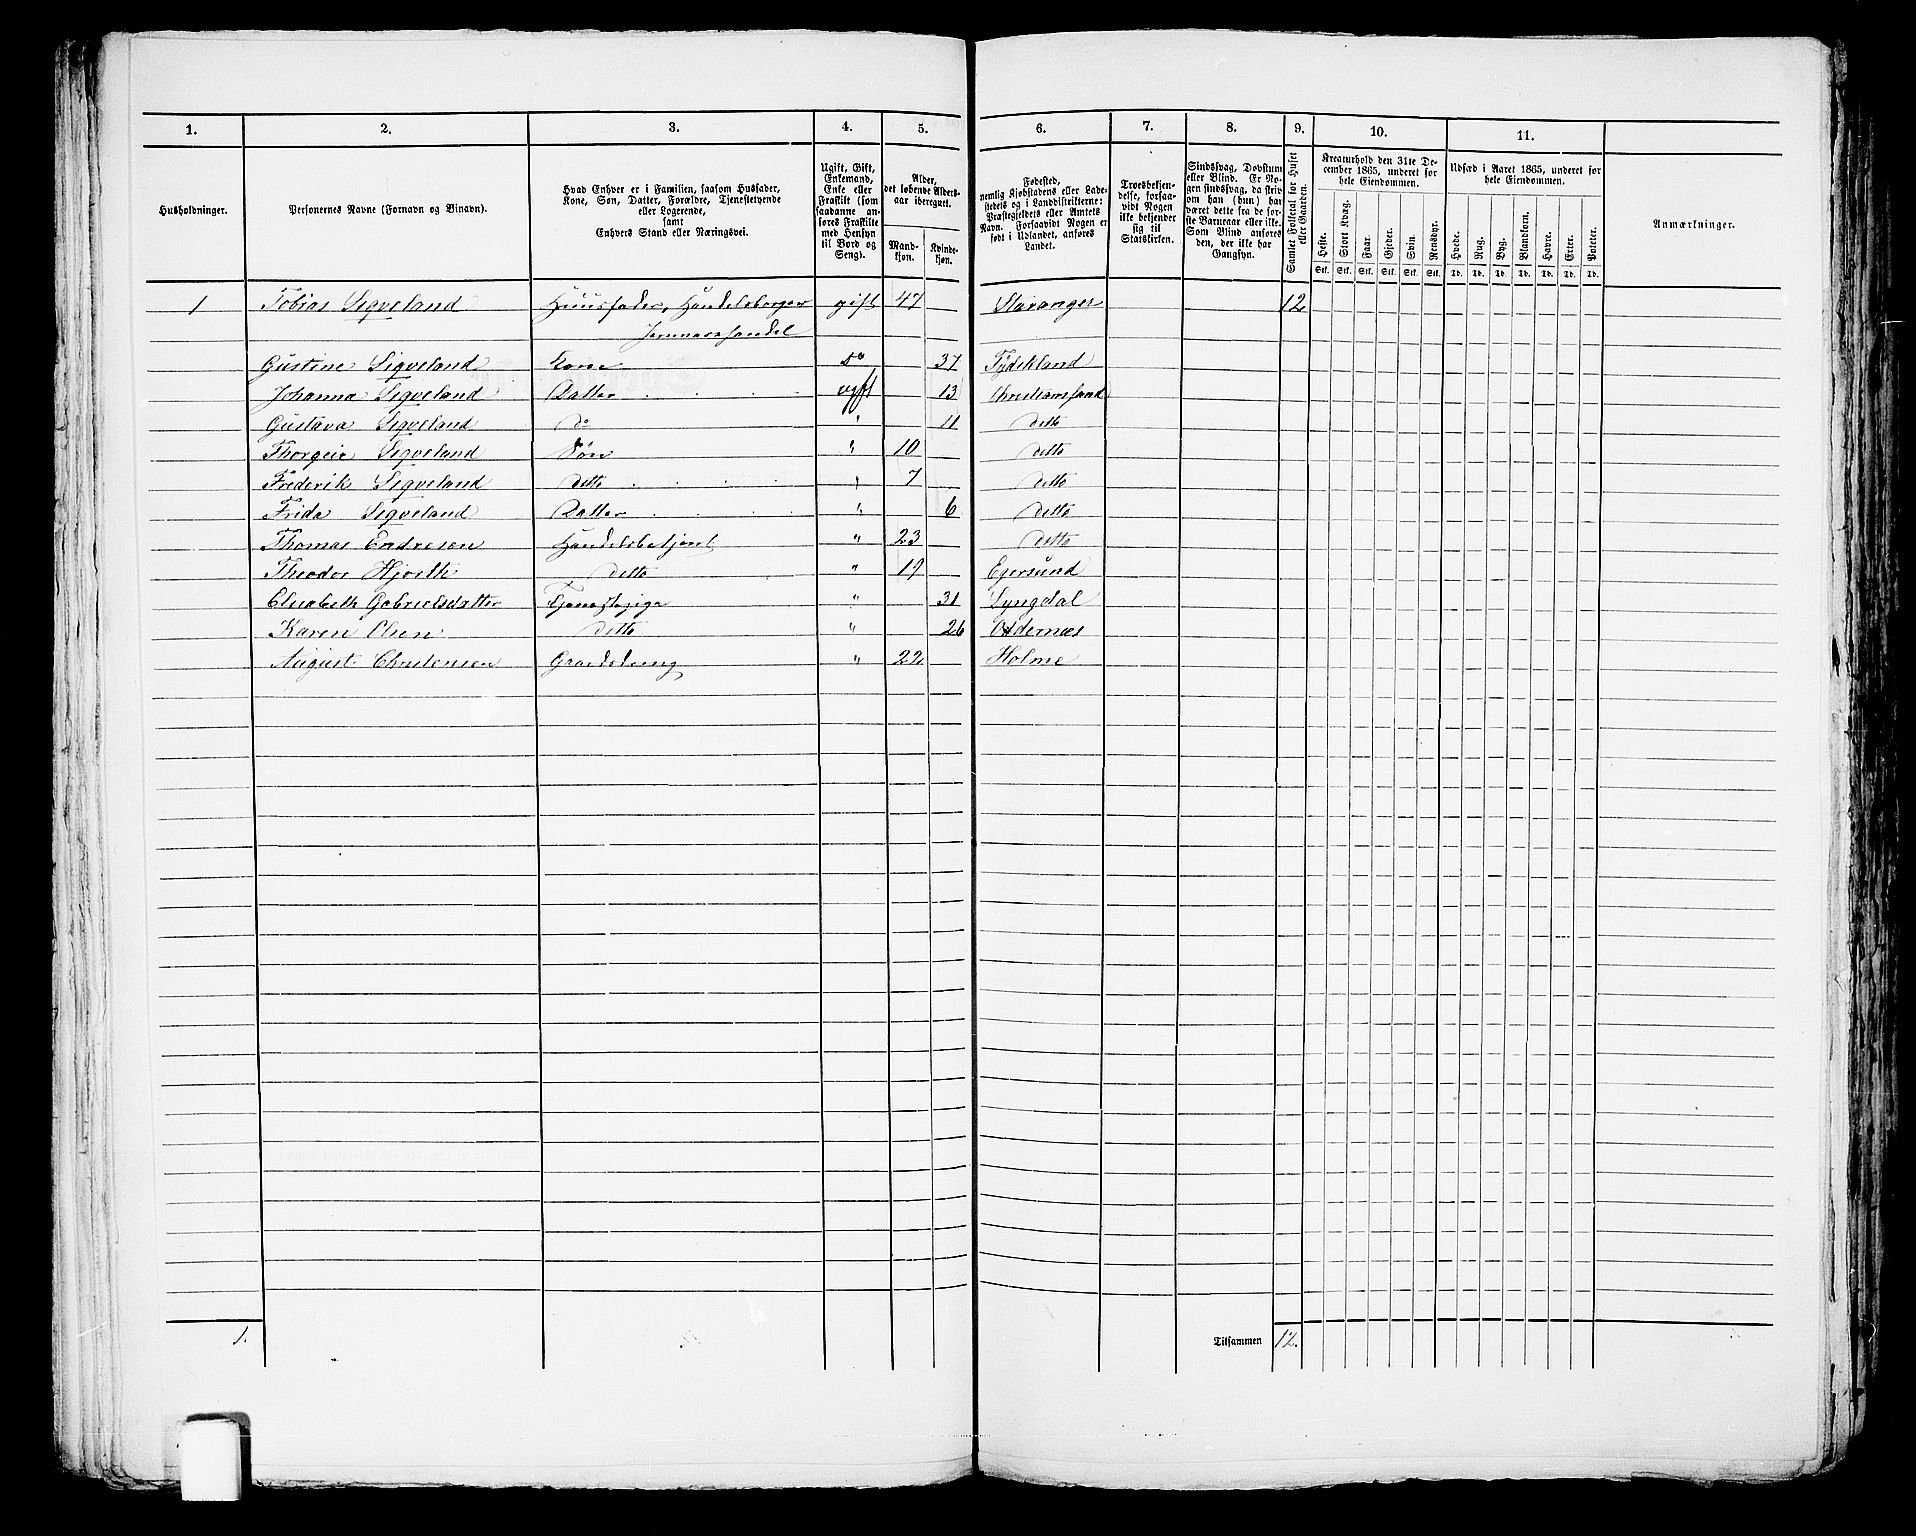 1. 2. 3. 4. 5. 6. 7. 8. 9. 10. 11.
Husholdninger.
Personernes Navne (Fornavn og Binavn).
Hvad Enhver er i Familien, saasom Husfader,
Kone, Søn, Datter, Forældre, Tjenestetyende
eller Logerende,
samt
Enhvers Stand eller Næringsvei.
Ugift, Gift,
Enkemand,
Enke eller
Fraskilt (som
saadanne an-
føres Fraskilte
med Hensyn
til Bord og
Seng).
Alder,
det løbende Alders-
aar iberegnet.
Mand-
kjøn.
Kvinde-
kjøn.
Fødested,
nemlig Kjøbstadens eller Lade-
stedets og i Landdistrikterne:
Præstegjeldets eller Amtets
Navn. Forsaavidt Nogen er
født i Udlandet, anføres
Landet.
Troesbekjen-
delse, forsaa-
vidt Nogen
ikke bekjender
sig til
Statskirken.
Sindssvag, Døvstum
eller Blind. Er No-
gen sindssvag, da skriv
om han (hun) har
været dette fra de før-
ste Barneaar eller ikke.
Som Blind anføres
den, der ikke har
Gangsyn.
Samlet Folketal for Huset
eller Gaarden.
Kreaturhold den 31te De-
cember 1865, underet for
hele Eiendommen.
Heste. Stort Kvæg. Faar. Gjeder. Svin. Rensdyr.
Stk. Stk. Stk. Stk. Stk. Stk.
Udsæd i Aaret 1865, underet for
hele Eiendommen.
Hvede. Rug. Byg. Blandkorn. Havre. Erter. Poteter.
Td. Td. Td. Td. Td. Td. Td.
Anmærkninger.
1 Tobias Sigveland Huusfader, Handelsborger gift 47 Stavanger 12
Jernvarehandel
Gustine Sigveland Kone do 37
Johanna Sigveland Datter ugift 13 Christiansand
Gustava Sigveland do " 11 detto
Thorgeir Sigveland Søn " 10 detto
Frederik Sigveland detto " 7 detto
Frida Sigveland Datter " 6 detto
Thomas Endresen Handelsbetjent " 23 detto
Theodor Hjorth detto " 19 Egersund
Elisabeth Gabrielsdatter Tjenestepige " 31 Lyngdal
Karen Olsen detto " 26 Oddernæs
August Christensen Gaardsdreng " 22 Holme
1. Tilsammen 12.